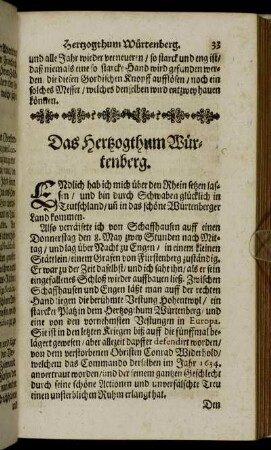 Hertzogthum Würtenberg. 33
und alle Jahr wieder verneuern / so starck und eng ist /
daß niemals eine so starcke Hand wird gefunden wer-
den / die diesen Gordischen Knopff aufflösen / noch ein
solches Messer / welches denselben wird entzwey hauen
können.
Das Hertzogthum Wür-
tenberg.
ENdlich hab ich mich über den Rhein setzen las-
sen / und bin durch Schwaben glücklich in
Teutschland / uñ in das schöne Würtenberger
Land kommen.
Also verreisete ich von Schaffhausen auff einen
Donnerstag den 8. May zwey Stunden nach Mit-
tag / und lag über Nacht zu Engen / in einem kleinen
Stättlein / einem Grafen von Fürstenberg zuständig.
Er war zu der Zeit daselbst / und ich sahe ihn / als er sein
eingefallenes Schloß wieder auffbauen ließ. Zwischen
Schaffhausen und Engen läst man auff der rechten
Hand liegen die berühmte Vestung Hohentwyl / ein
starcker Platz in dem Hertzogthum Würtenberg / und
eine von den vornehmsten Vestungen in Europa.
Sie ist in den letzten Kriegen biß auff die fünffmal be-
lägert gewesen / aber allezeit dapffer defendirt worden /
von dem verstorbenen Christen Conrad Widerhold /
welchem das Commando derselben im Jahr 1634.
anvertraut worden / und der seinem gantzen Geschlecht
durch seine schöne Actionen und unverfälschte Treu
einen unsterblichen Ruhm erlanget hat.
Den